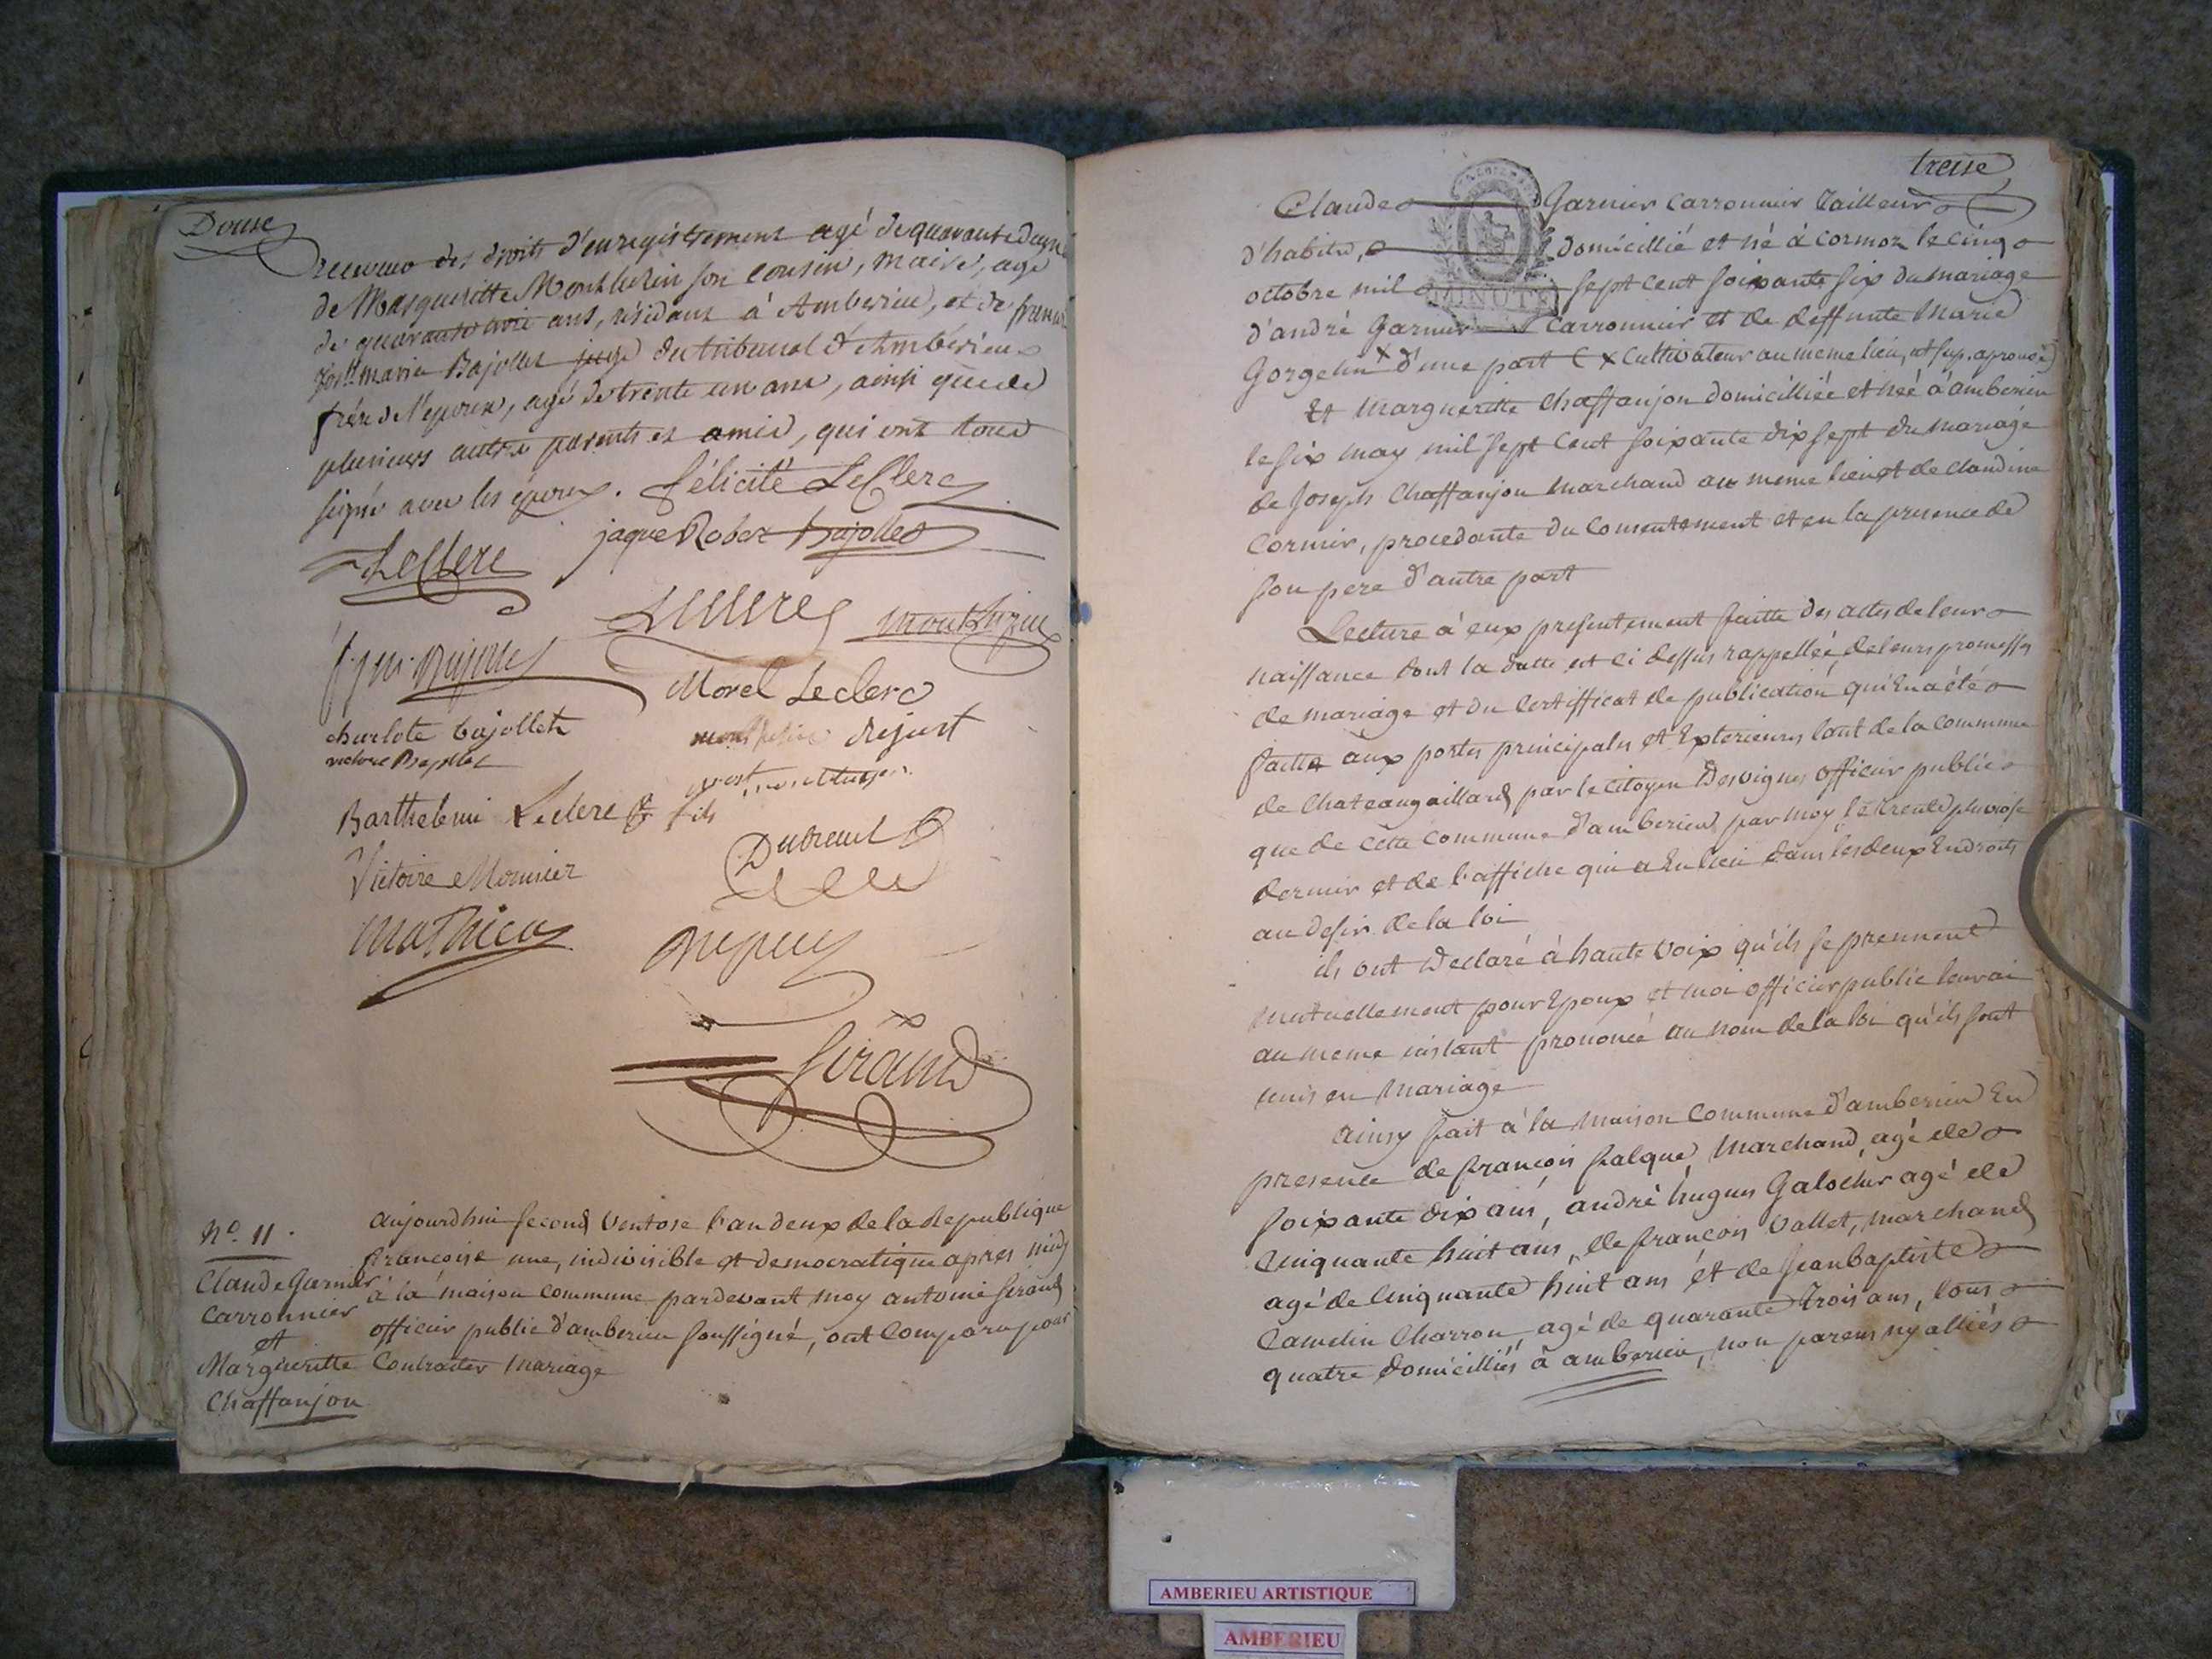 Douse
receveur des droits d'enregistrement agé de quarante deux
de Margueritte Montluzin son cousin, maire, agé
de quarante trois ans, résidant à Amberieu, et de
marie Bajollet juge du tribunal d'Ambérieux
frère de l'epoux, agé de trente un ans, ainsi que de
plusieurs autres parents et amis, qui ont tous
signé avec les époux. félicité LeClerc
LeClerc jaque Robert bajollet
Leclerc
Morel Leclerc
charlote bajollet
victoire Bajollet
Barthelemi Leclerc fils
Victoire Monnier
Dutreuil
Mathieu
Girand
N.° 11.
Claude Garnier
Carronnier
et
Margueritte
Chaffanjon
aujourdhui second Ventose l'an deux de la Republique
françoise une, indivisible et democratique apres midy
à la maison commune pardevant moy antoine Girand
officier public d'amberieu soussigné, ont comparu pour
Contracter mariage
treise
Claude Garnier Carronnier Tailleur
d'habits, domicillié et né à Cormoz le cinq
octobre mil sept cent soixante six du mariage
MINUTE
d'andré Garnier Carronnier et de deffunte Marie
Gorgelin x d'une part ( x Cultivateur au meme lieu,
Et Margueritte Chaffanjon domicilliée et née à amberieu
le six may mil sept Cent soixante dix sept du mariage
de Joseph Chaffanjon marchand au meme lieu et de Claudine
Cormier, procedante du Consentement et en la presence de
son pere d'autre part
Lecture à eux presentement faitte des actes de leur
naissance dont la datte est ci dessus rappellée, de leurs promesses
de mariage et du Certifficat de publication qui En a été
faitte aux portes principales et Exterieures tant de la commune
de Chateaugaillard par le Citoyen Desvignes officier public
que de cette commune d'amberieu par moy le trente pluviose
dernier et de l'affiche qui a Eu lieu dans les deux Endroits
au desir de la loi
ils ont Declaré à haute Voix qu'ils se prennent
mutuellement pour Epoux et moi officier public leur ai
au meme instant prononcé au nom de la loi qu'ils sont
unis en Mariage
ainsy fait à la maison Commune d'amberieu En
presence de françois falque, Marchand, agé de
soixante dix ans, andré hugues Galocher agé de
Cinquante huit ans, de françois Vallet, marchand
agé de Cinquante huit ans et de Jean baptiste
Camelin Charron, agé de quarante Trois ans, tous
quatre Domicilliés à amberieu, non parens ny alliés
AMBERIEU ARTISTIQUE
AMBERIEU